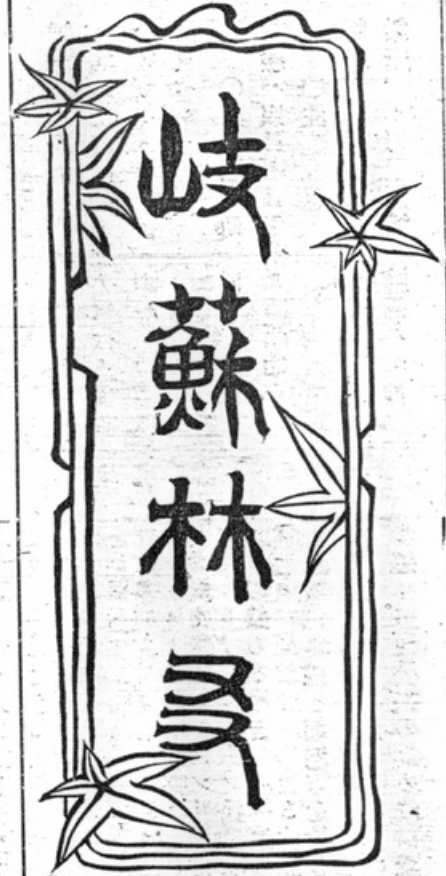 岐蘇林友